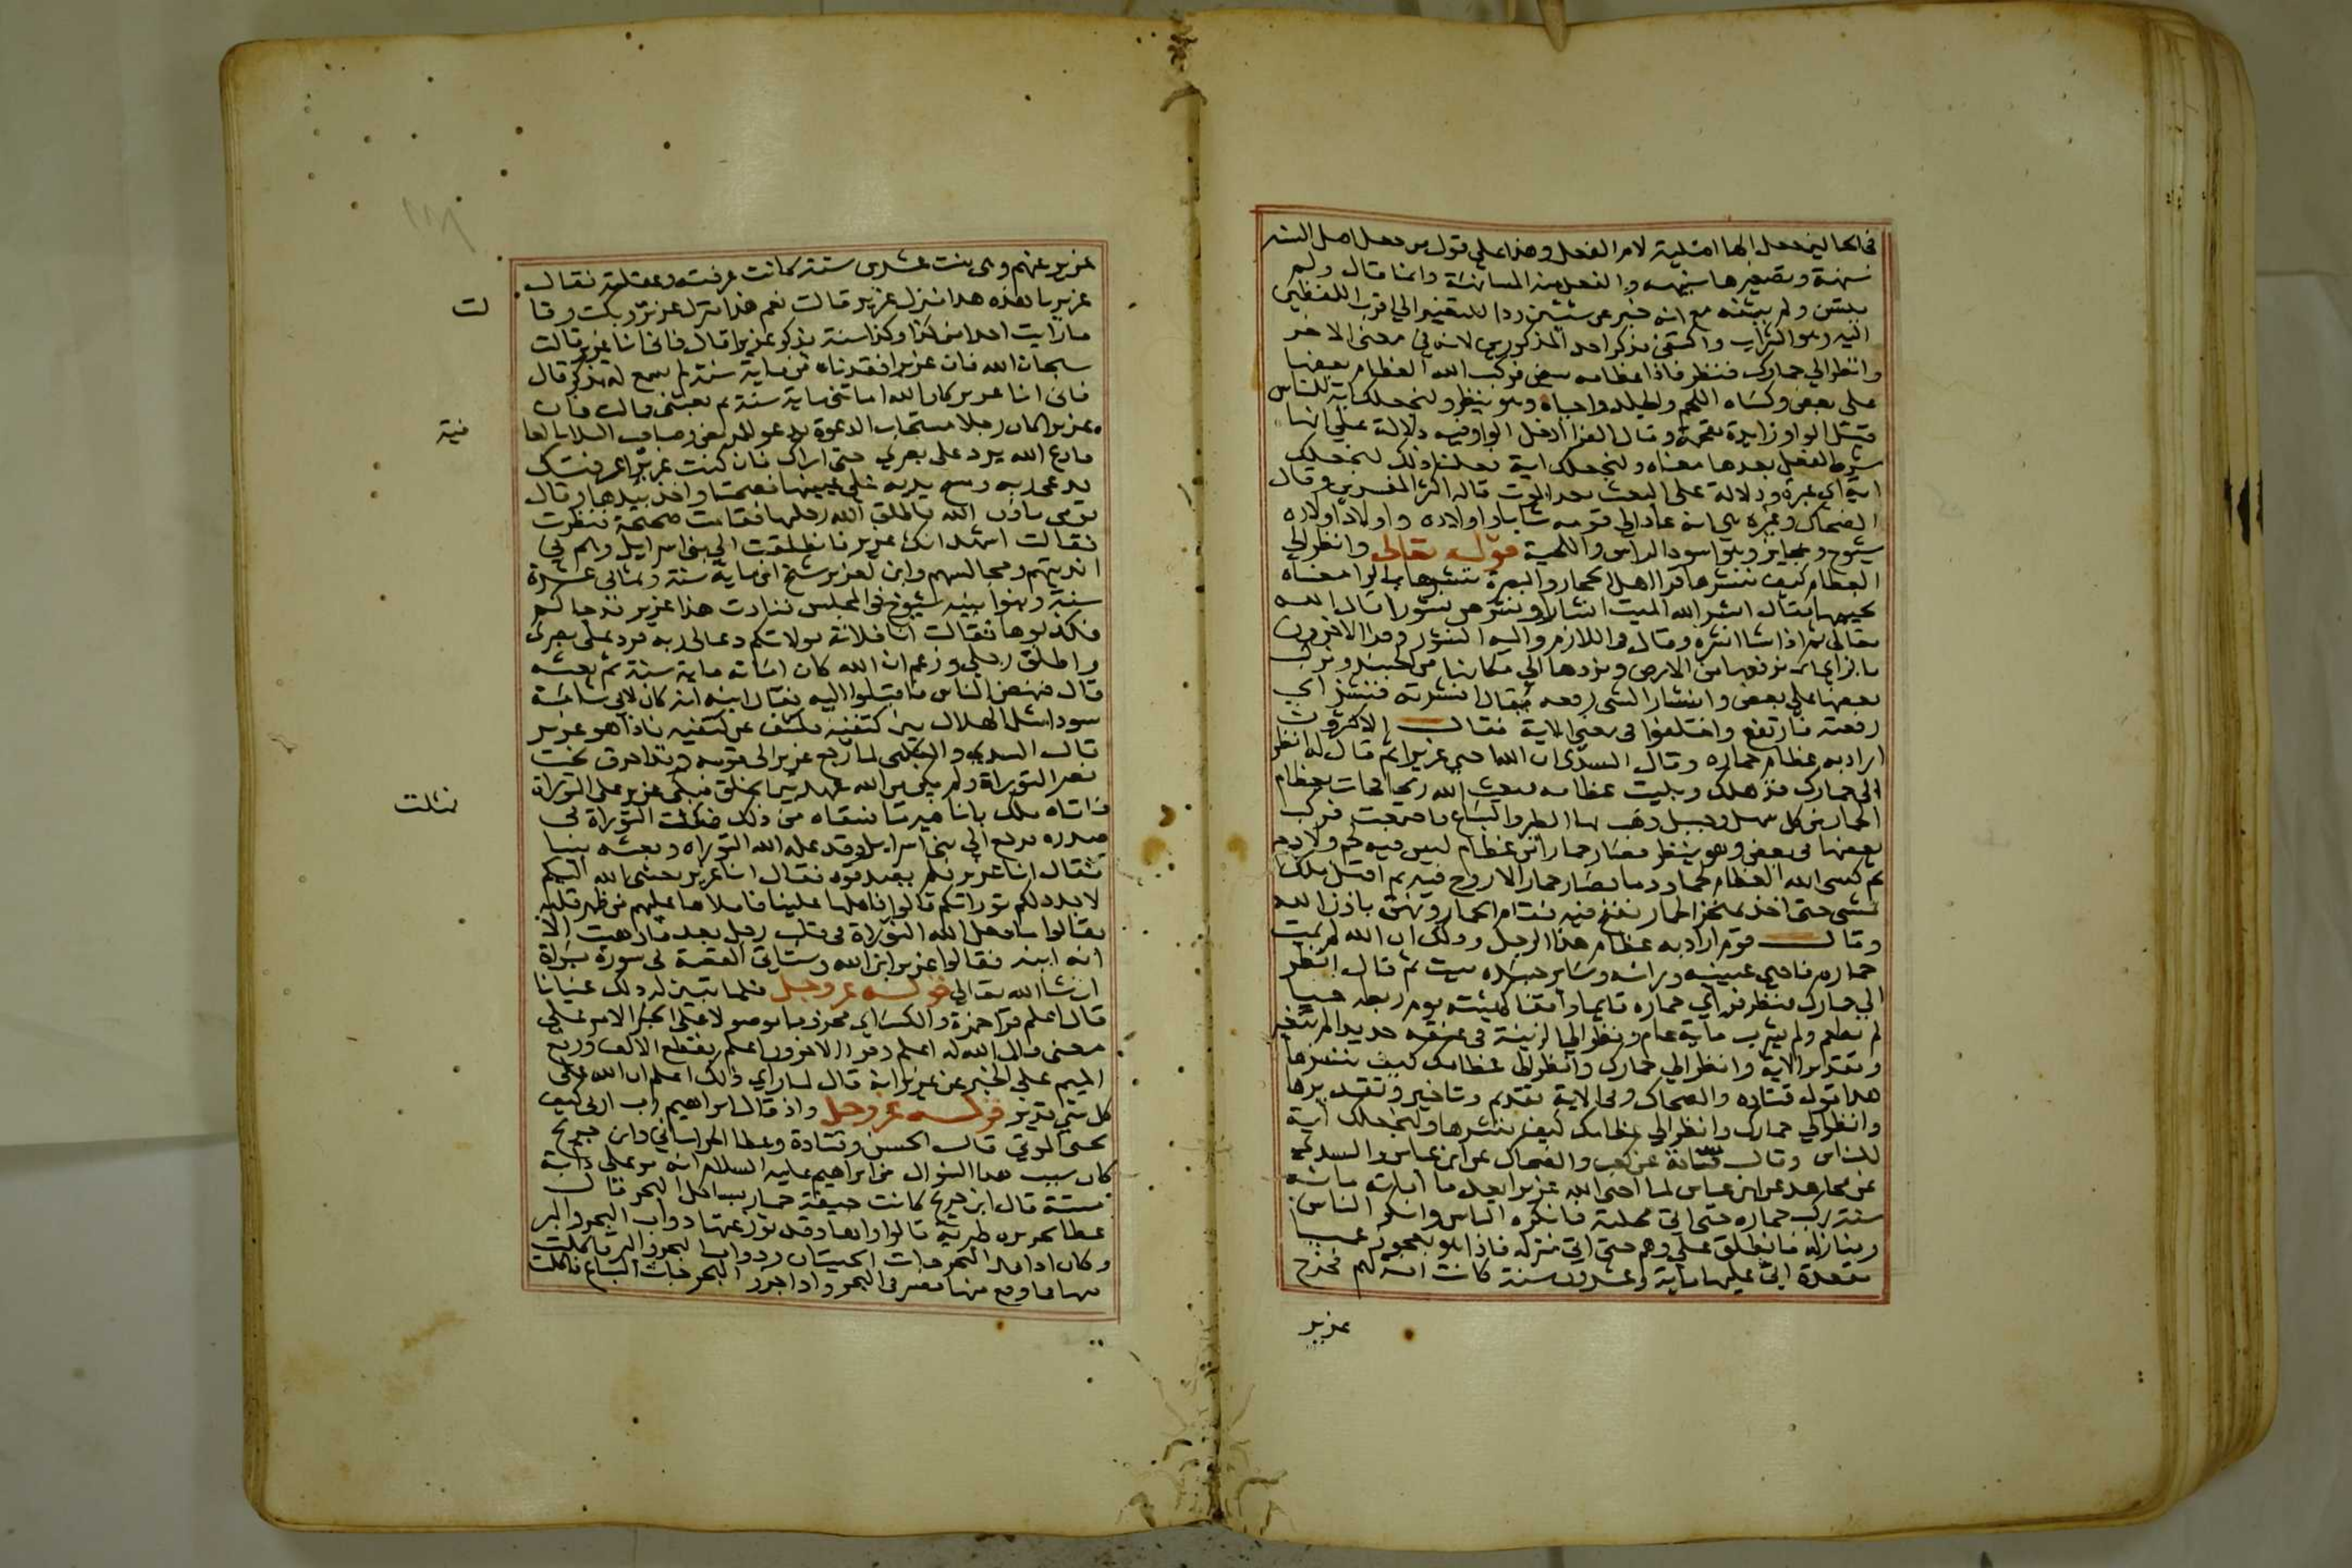 في الحالين جعل الها اصلية لام الفعل وهذا على قول من جعل اصل السنة
سنهة وتصغيرها سنيهة والفعل منه المسانهة وانما قال ولم
يتسن ولم يثنه مع انه خبر عن شيئين ردا للتغير الي اقرب اللفظين
اليه وهو الشراب واكتفى بذكر احد المذكورين لانه في معنى الاخر
وانظر الي حمارك فنظر فاذا عظامه بيض فركب الله العظام بعضها
على بعض وكساه اللحم والجلد واحياه وهو ينظر ولنجعلك اية للناس
قيل الواو زايدة مقحمة وقال الفرا ادخل الواو فيه دلالة على انها
شرط لفعل بعدها معناه ولنجعلك اية فعلنا ذلك لنجعلك
اية اي عبرة ودلالة على البعث بعد الموت قاله اكثر المفسرين وقال
الضحاك وغيره هي انه عاد الى قومه شابا واولاده واولاد اولاده
شيوخ وعجايز وهو اسود الراس واللحية قوله تعالى وانظر الي
العظام كيف ننشرها قرا اهل الحجاز والبصرة ننشرها بالرا معناه
نحييها يقال انشر الله الميت انشارا ونشر هو نشورا قال الله
تعالى ثم اذا شا انشره وقال في اللازم واليه النشور وقرا الاخرون
بالزاي اي نرفعها من الارض ونردها الي مكانها من الجسد ونركب
بعضها على بعض وانشاز الشي رفعه يقال انشزته فنشز اي
رفعته فارتفع واختلفوا في معنى الاية فقال الاكثرون
اراد به عظام حماره وقال السدي ان الله احيى عزيرا ثم قال له انظر
الى حمارك قد هلك وبليت عظامه فبعث الله ريحا فجات بعظام
الحمار من كل سهل وجبل ذهب بها الطير والسباع فاجتمعت فركب
بعضها في بعض وهو ينظر فصار حمارا من عظام ليس فيه لحم ولا دم
ثم كسى الله العظام لحما ودما فصار حمارا لا روح فيه ثم اقبل ملك
يمشي حتى اخذ بمنخر الحمار فنفخ فيه فقام الحمار ونهق باذن الله
وقال قوم اراد به عظام هذا الرجل وذلك ان الله لم يمت
حماره فاحيى عينيه وراسه وساير جسده ميت ثم قال انظر
الي حمارك فنظر فراي حماره قايما واقفا كهيئته يوم ربطه حيا
لم يطعم ولم يشرب ماية عام ونظر الي الرمة في عنقه جديدة لم تتغير
وتقدير الاية وانظر الي حمارك وانظر الى عظامك كيف ننشزها
هذا قول قتاده والضحاك وفي الاية تقديم وتاخير وتقديرها
وانظر الي حمارك وانظر الي عظامك كيف ننشزها ولنجعلك اية
للناس وقال قتادة عن كعب والضحاك عن ابن عباس والسدي
عن مجاهد عن ابن عباس لما احيى الله عزيرا بعد ما اماته ماية
سنة ركب حماره حتى اتى محلته فانكره الناس وانكر الناس
ومنازله فانطلق على وهم حتى اتى منزله فاذا هو بعجوز عميا
مقعدة اتى عليها ماية وعشرون سنة كانت امة لهم فخرج
عزير
عزير عنهم وهي بنت عشرين سنة كانت عرفته وعقلته فقال
عزير يا هذه هذا منزل عزير قالت نعم هذا منزل عزير وبكت وقا
لت
ما رايت احدا من كذا وكذا سنة يذكر عزيرا قال فاني انا عزير قالت
سبحان الله فان عزيرا فقدناه من ماية سنة لم نسمع له بذكر قال
فاني انا عزير كان الله اماتني ماية سنة ثم بعثني قالت فان
عزيرا كان رجلا مستجاب الدعوة يدعو للمريض وصاحب البلا بالعا
فية
فادع الله يرد على بصري حتى اراك فان كنت عزيرا عرفتك
فدعى ربه ومسح يده على عينيها فصحتا واخذ بيدها وقال
قومي باذن الله فاطلق الله رجلها فقامت صحيحة فنظرت
فقالت اشهد انك عزير فانطلقت الي بني اسرايل وهم في
انديتهم ومجالسهم وابن لعزير شيخ ابن ماية سنة وثماني عشرة
سنة وبنوا بنيه شيوخ في المجلس فنادت هذا عزير قد جاكم
فكذبوها فقالت انا فلانة مولاتكم دعا لي ربه فرد على بصري
واطلق رجلي وزعم ان الله كان اماته ماية سنة ثم بعثه
قال فنهض الناس فاقبلوا اليه فقال ابنه انه كان لابي شامة
سودا مثل الهلال بين كتفيه فكشف عن كتفيه فاذا هو عزير
قال السدي والكلبي لما رجع عزير الى قومه وقد احرق بخت
نصر التوراة ولم يكن من الله عهد بين الخلق فبكى عزير على التوراة
فاتاه ملك باناء فيه ما فسقاه من ذلك فمثلت التوراة في
فمثلت
صدره فرجع الي بني اسرايل وقد علمه الله التوراة وبعثه نبيا
فقال انا عزير فلم يصدقوه فقال انا عزير بعثني الله اليكم
لاجدد لكم توراتكم قالوا املها علينا فاملاها عليهم من ظهر قلبه
فقالوا ما جعل الله التوراة في قلب رجل بعد ما ذهبت الا
انه ابنه فقالوا عزير ابن الله وستاتي القصة في سورة براة
ان شا الله تعالي قوله عز وجل فلما تبين له ذلك عيانا
قال اعلم قرا حمزة والكساي مجزوما موصولا على الامر على
معنى قال الله له اعلم وقرا الاخرون اعلم بقطع الالف ورفع
الميم على الخبر عن عزير انه قال لما راي ذلك اعلم ان الله على
كل شي قدير قوله عز وجل واذ قال ابراهيم رب ارني كيف
تحيى الموتى قال الحسن وقتادة وعطا الخراساني وابن جريج
كان سبب هذا السوال من ابراهيم عليه السلام انه مر على دابة
ميتة قال ابن جريج كانت جيفة حمار بساحل البحر قال
عطا بحيرة طبرية قالوا فراها وقد توزعتها دواب البحر والبر
وكان اذا مد البحر جات الحيتان ودواب البحر فاكلت
منها فما وقع منها يصير في البحر واذا جزر البحر جات السباع فاكلت